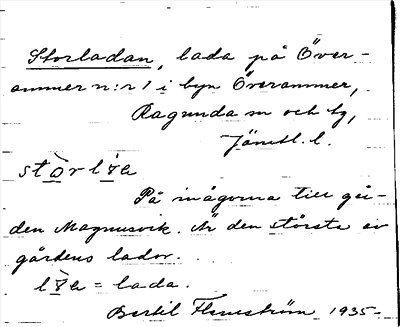 Storladan, lada på Över-
ammer n:r 1 i byn Överammer,
Ragunda sn och tg,
Jämtl. l.
På inägorna till går-
den Magnusvik. Är den största av
gårdens lador.
= lada.
Bertil Flemström 1935.